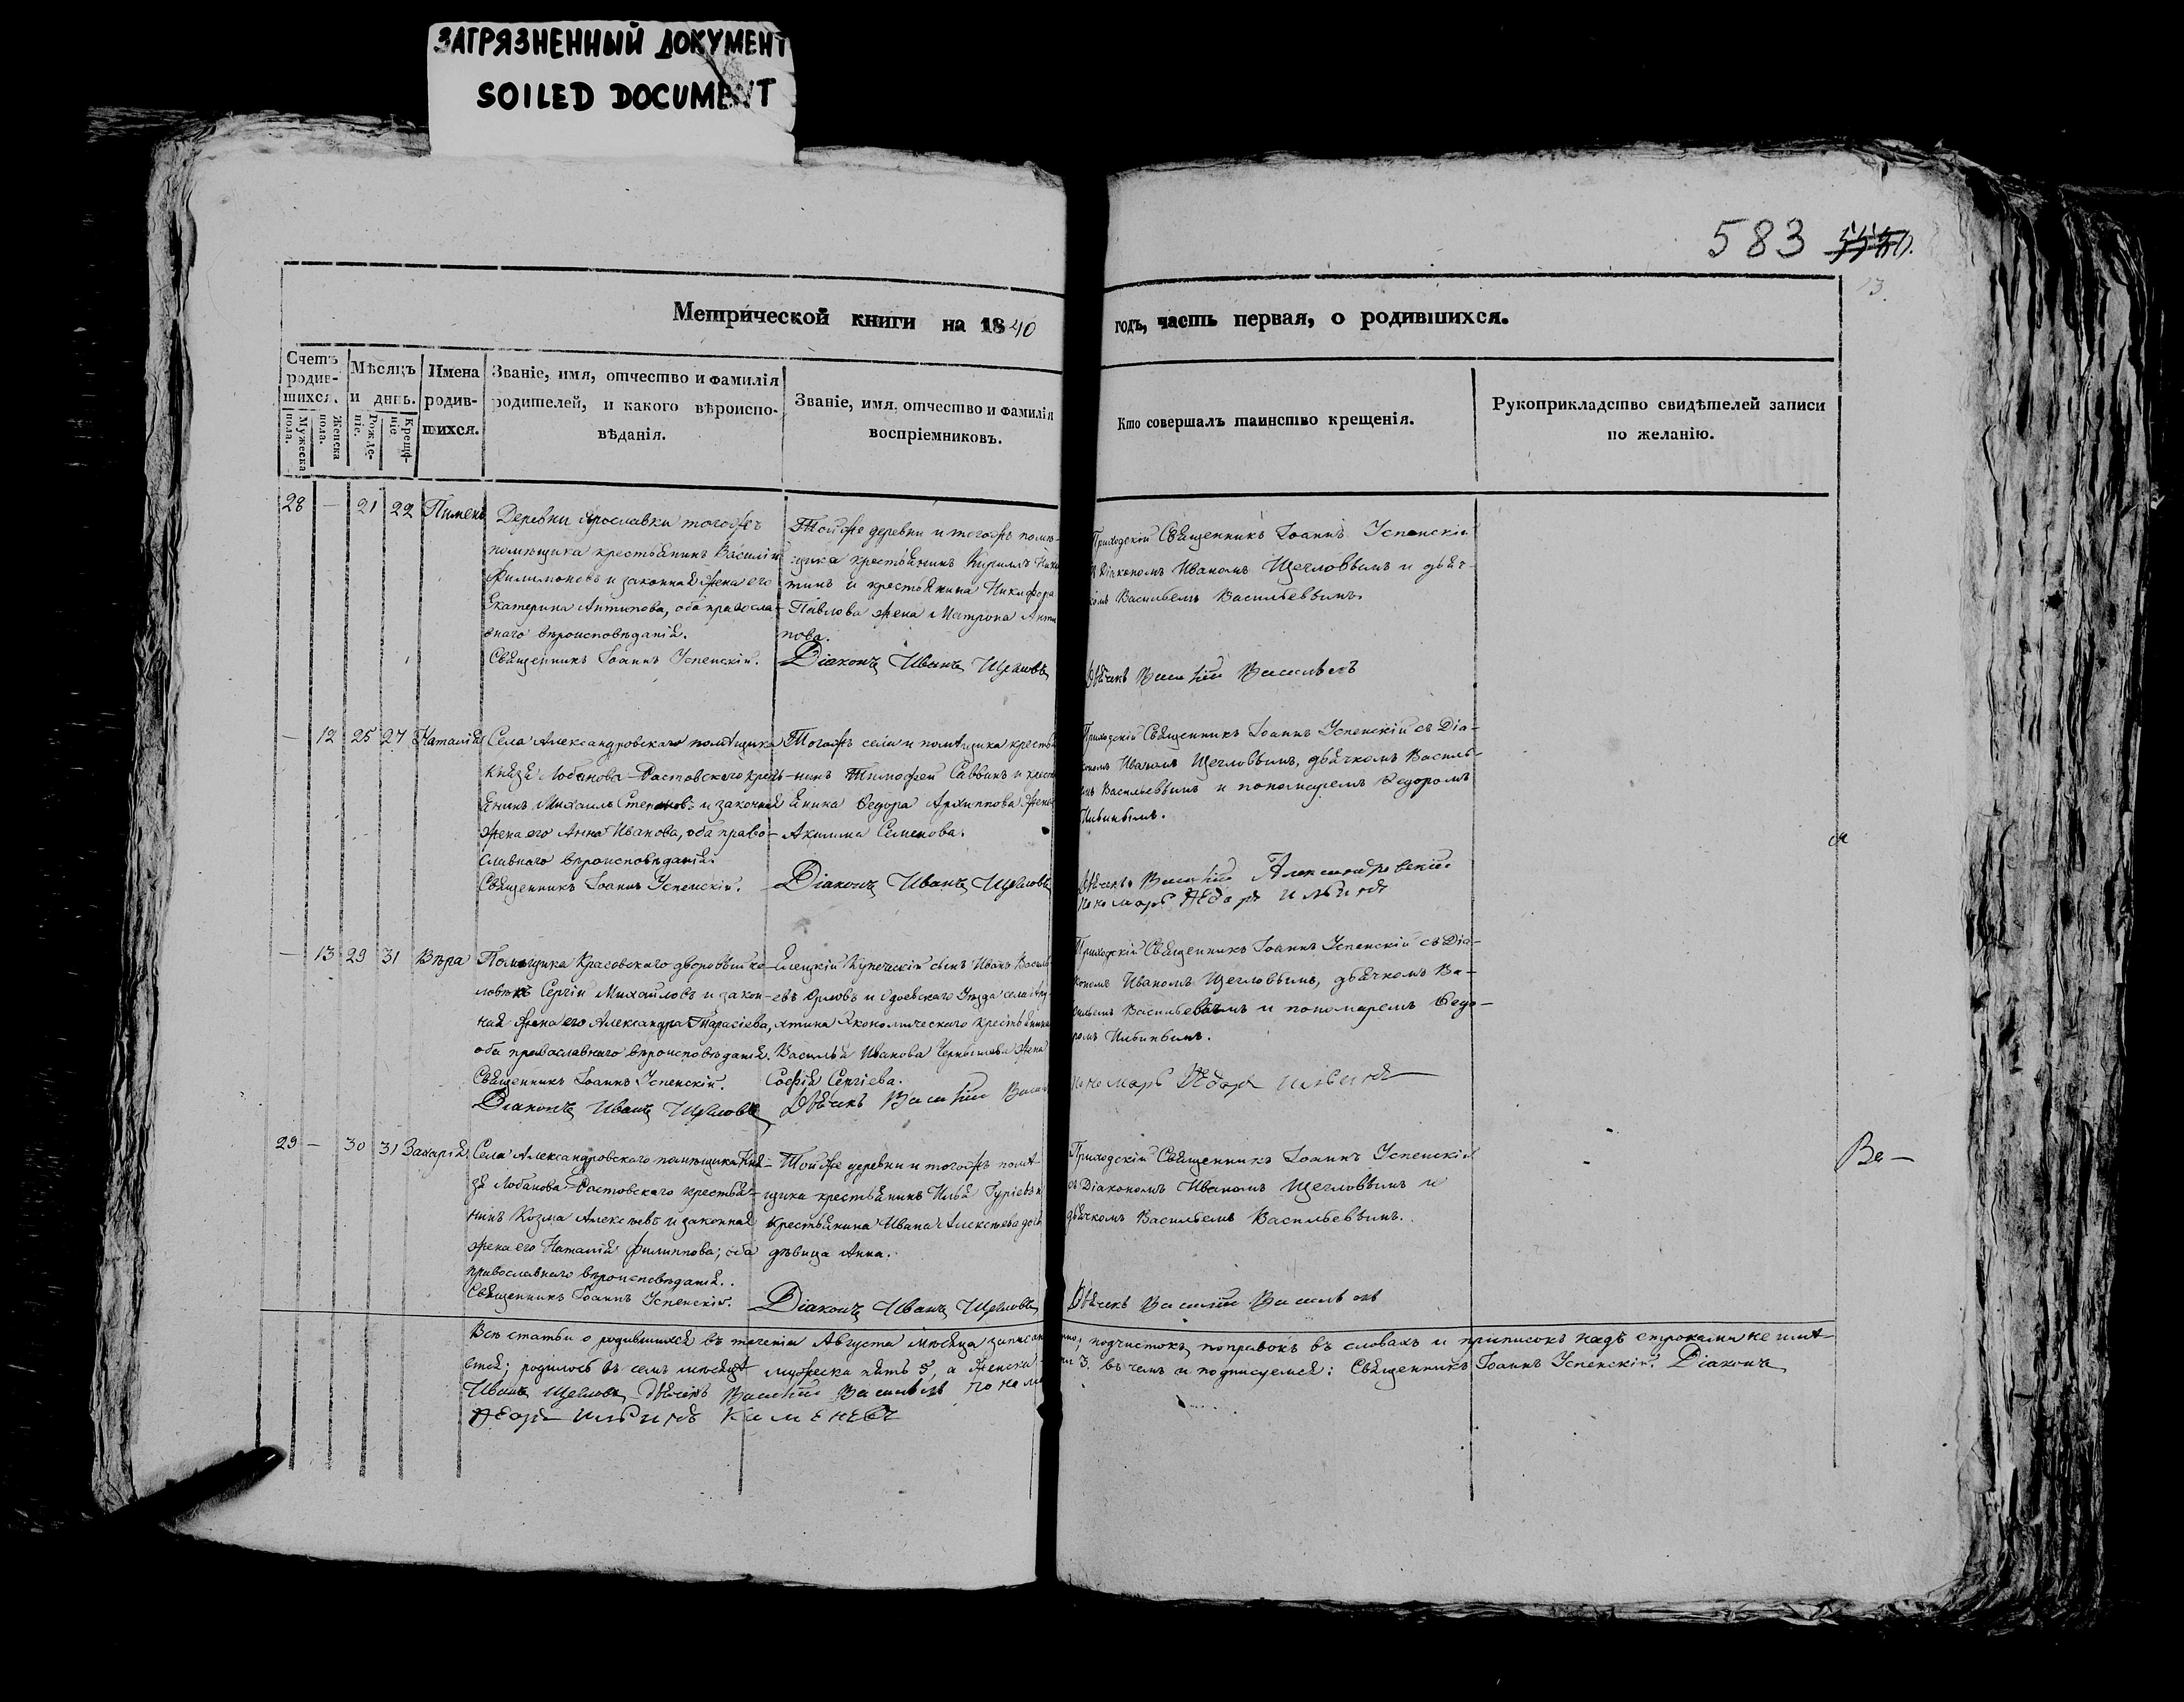 ЗАГРЯЗНЕННЫЙ ДОКУМЕНТ
SOILED DOCUMENT
583
13.
Метрической книги на 1840
годъ, часть первая, о родившихся.
Счетъ родив-шихся.
Мужеска пола.
Женска пола.
Мѣсяцъ и день.
Рожде-ніе.
Креще-ніе
Имена родив-шихся.
Званіе, имя, отчество и фамилія
родителей, и какого вѣроиспо-
вѣданія.
Званіе, имя, отчество и фамилія
воспріемниковъ.
Кто совершалъ таинство крещенія.
Рукоприкладство свидѣтелей записи
по желанію.
28 — 21 22 Пименъ
Деревни Ярославки тогожъ
помѣщика крестьянинъ Василій
Филимоновъ и законная жена его
Екатерина Антипова, оба правосла-
внаго вѣроисповѣданія.
Священникъ Іоаннъ Успенскій.
Тойже деревни и тогожъ помѣ-
щика крестьянинъ Кириллъ Ники
тинъ и крестьянина Никифора
Павлова жена Матрона Анти
пова.
Діаконъ Иванъ Щегловъ
Приходскій Священникъ Іоаннъ Успенскій
съ Діакономъ Иваномъ Щегловымъ и дьяч-
комъ Васильемъ Васильевымъ.
Дьячекъ Василій Васильевъ
— 12 25 27 Наталія
Села Александровскаго помѣщика
Князя Лобанова-Ростовскаго кресть-
янинъ Михаилъ Степановъ и законная
жена его Анна Иванова, оба право-
славнаго вѣроисповѣданія.
Священникъ Іоаннъ Успенскій.
Тогожъ села и помѣщика крестья
-нинъ Тимофей Саввинъ и кресть
янина Ѳедора Архиппова жена
Акилина Семенова.
Діаконъ Иванъ Щегловъ
Приходскій Священникъ Іоаннъ Успенскій съ Діа-
кономъ Иваномъ Щегловымъ, дьячкомъ Василь-
емъ Васильевымъ и пономаремъ Ѳедоромъ
Ильинымъ.
Дьячекъ Василій Александровскій
Пономарь Ѳедоръ Ильинъ
— 13 29 31 Вѣра
Помѣщика Красовскаго дворовый че-
ловѣкъ Сергій Михайловъ и закон-
ная жена его Александра Тарасіева,
оба православнаго вѣроисповѣданія.
Священникъ Іоаннъ Успенскій.
Діаконъ Иванъ Щегловъ
Елецкій Купеческій сынъ Иванъ Василь
евъ Орловъ и Одоевскаго Уѣзда села
Экономическаго крестьянина
Василья Иванова Чернышева жена
Софія Сергіева.
Дьячекъ Василій
Приходскій Священникъ Іоаннъ Успенскій съ Діа-
кономъ Иваномъ Щегловымъ, дьячкомъ Ва-
сильемъ Васильевымъ и пономаремъ Ѳедо-
ромъ Ильинымъ.
Пономарь Ѳедоръ Ильинъ
29 — 30 31 Захарія
Села Александровскаго помѣщика Кня-
зя Лобанова-Ростовскаго крестья-
нинъ Козма Алексѣевъ и законная
жена его Наталія Филиппова; оба
православнаго вѣроисповѣданія.
Священникъ Іоаннъ Успенскій.
Тойже деревни и тогожъ помѣ-
щика крестьянинъ Илья Гуріевъ и
крестьянина Ивана Алексѣева дочь
дѣвица Анна.
Діаконъ Иванъ Щегловъ
Приходскій Священникъ Іоаннъ Успенскій
съ Діакономъ Иваномъ Щегловымъ и
дьячкомъ Васильемъ Васильевымъ.
Дьячекъ Василій Васильевъ
Ве-
Всѣ статьи о родившихся въ теченіи Августа мѣсяца записаны, подчистокъ, поправокъ въ словахъ и приписокъ надъ строками не имѣ-
ется; родилось въ семъ мѣсяцѣ мужеска пять 5, а женска 3. въ чемъ и подписуемся: Священникъ Іоаннъ Успенскій. Діаконъ
Иванъ Щегловъ Дьячекъ Василій Васильевъ
Ѳедоръ Ильинъ Каменевъ